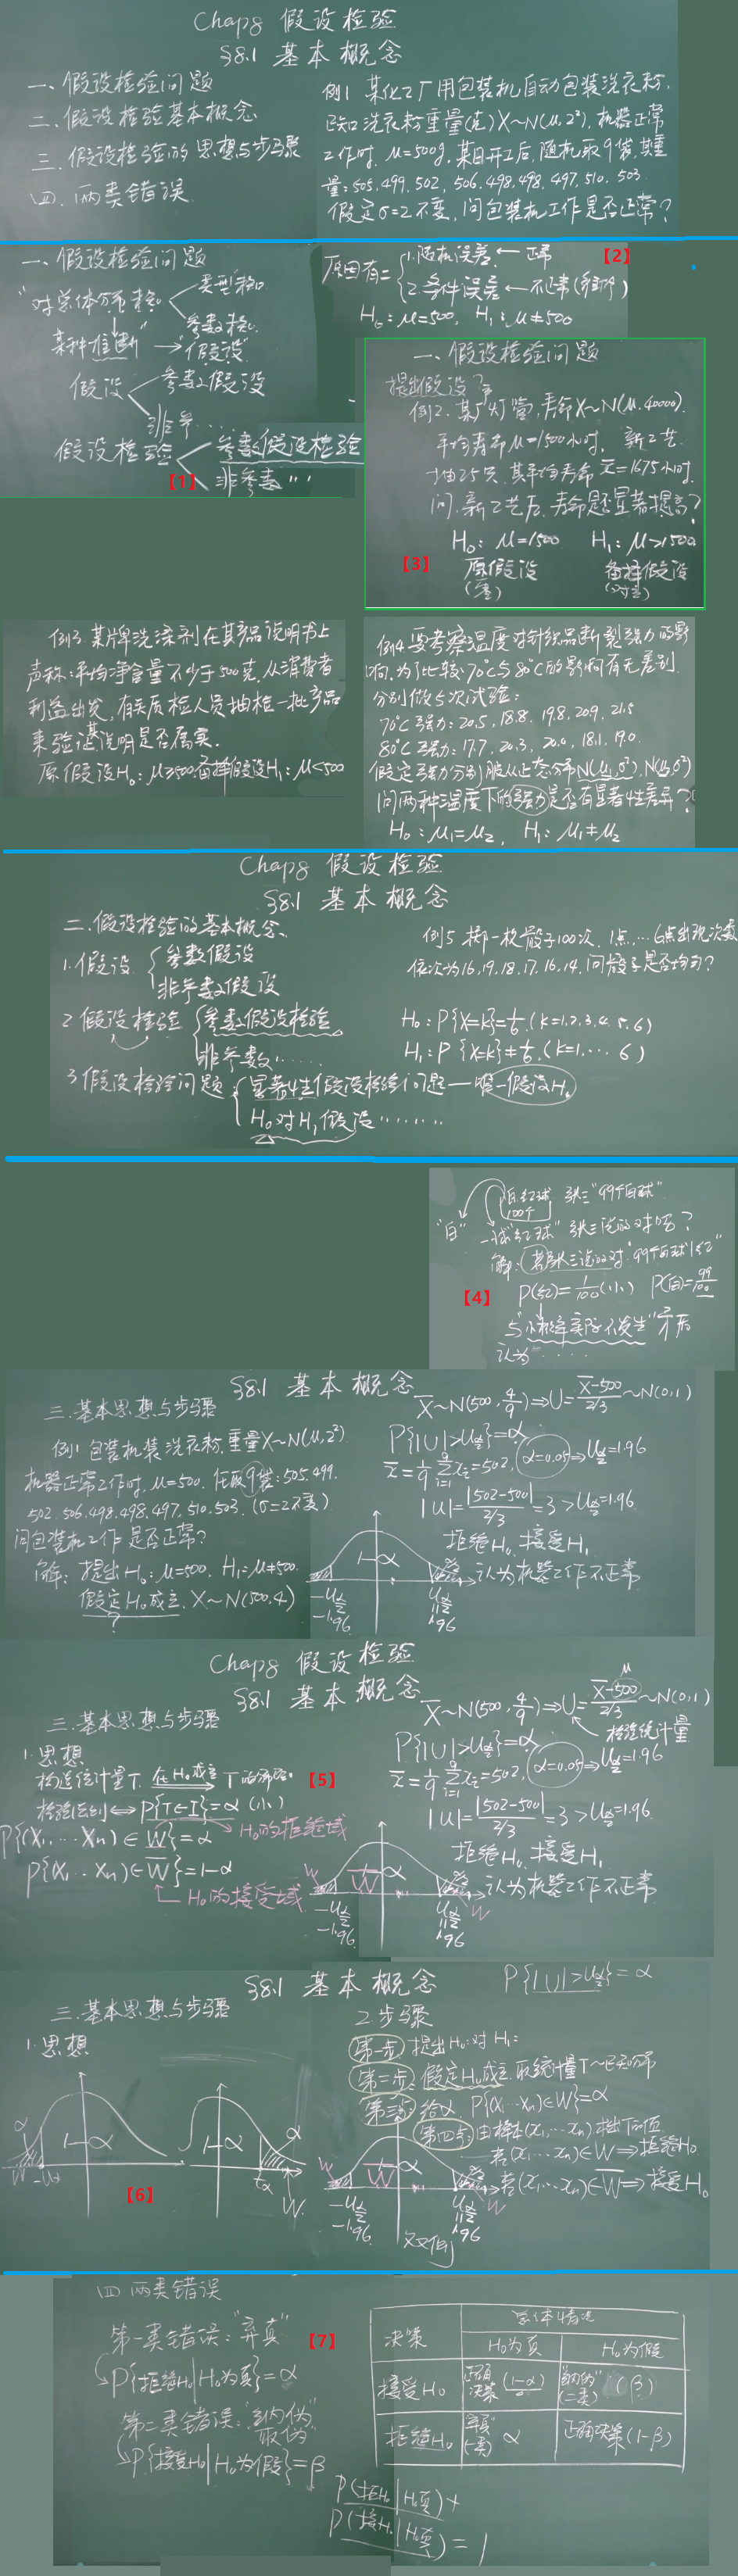 Chap8 假设检验
§8.1 基本概念
一、假设检验问题
二、假设检验基本概念
三、假设检验的思想与步骤
四、两类错误
例1 某化工厂用包装机自动包装洗衣粉,
已知洗衣粉重量(克)X~N(μ,2²),机器正常
工作时, μ=500g,某日开工后,随机取9袋,其重
量:505,499,502,506,498,498,497,510,503.
假定σ=2不变,问包装机工作是否正常?
一、假设检验问题
某种推断" → "假设"
假设 参数假设
非参……
假设检验 参数假设检验
非参数 〃〃
【1】
原因有二 1.随机误差 ← 正常
2.条件误差 ← 不正常
H₀:μ=500, H₁:μ≠500
【2】
一、假设检验问题
提出假设
例2.某厂灯管,寿命X~N(μ,40000)
平均寿命μ=1500小时, 新工艺
抽25只,其平均寿命 x̄=1675小时.
问,新工艺后,寿命是否显著提高?
H₀:μ=1500 H₁:μ>1500
原假设 备择假设
【3】
例3 某牌洗涤剂在其产品说明书上
声称:平均净含量不少于500克,从消费者
利益出发,有关质检人员抽检一批产品
来验证其说明是否属实.
原假设H₀:μ≥500 备择假设H₁:μ<500
例4 要考察温度对针织品断裂强力的影
响,为了比较70℃与80℃的影响有无差别.
分别做5次试验:
70℃强力:20.5, 18.8, 19.8, 20.9, 21.5
80℃强力:17.7, 20.3, 20.0, 18.1, 19.0.
假定强力分别服从正态分布N(μ₁,σ²),N(μ₂,σ²)
问两种温度下的强力是否有显著性差异?
H₀:μ₁=μ₂, H₁:μ₁≠μ₂
Chap8 假设检验
§8.1 基本概念
二.假设检验的基本概念
1.假设 参数假设
非参数假设
2.假设检验 参数假设检验
非参数……
3.假设检验问题: 显著性假设检验问题—唯一假设H₀
H₀对H₁假设………
例5 掷一枚骰子100次,1点,…6点出现次数
依次为16,19,18,17,16,14,问骰子是否均匀?
H₀:P{X=k}=1/6,(k=1,2,3,4,5,6)
H₁:P{X=k}≠1/6,(k=1,…6)
白.红球 张三"99个白球".
100个
"白" 一球"红球" 张三说的对吗?
解:若张三说的对"99个白球1红"
P(红)=1/100(小) P(白)=99/100
与"小概率实际不发生"矛盾
认为····
【4】
§8.1 基本概念
三.基本思想与步骤
例1 包装机装洗衣粉,重量X~N(μ,2²)
机器正常工作时, μ=500. 任取9袋:505,499,
502,506,498,498,497,510,503.(σ=2不变)
问包装机工作是否正常?
解:提出H₀:μ=500. H₁:μ≠500
假定H₀成立, X~N(500,4)
?
X̄~N(500,4/9)⇒U=(X̄-500)/(2/3)~N(0,1)
P{|U|>u_{α/2}}=α.
x̄=1/9 Σ_{i=1}^{9} x_i=502, α=0.05⇒u_{α/2}=1.96
|u|=|502-500|/(2/3)=3>u_{α/2}=1.96.
拒绝H₀,接受H₁
认为机器工作不正常
1-α
-u_{α/2} u_{α/2}
-1.96 1.96
Chap8 假设检验
§8.1 基本概念
三.基本思想与步骤
1.思想
构造统计量T. 在H₀成立 T的分布.
检验法则⇔P{T∈I}=α(小)
P{(X₁,…Xn)∈W}=α H₀的拒绝域
P{(X₁…Xn)∈W̄}=1-α
H₀的接受域
【5】
μ
X̄~N(500,4/9)⇒U=(X̄-500)/(2/3)~N(0,1)
检验统计量
P{|U|>u_{α/2}}=α.
x̄=1/9 Σ_{i=1}^{9} x_i=502, α=0.05⇒u_{α/2}=1.96
|u|=|502-500|/(2/3)=3>u_{α/2}=1.96.
拒绝H₀,接受H₁
认为机器工作不正常
W W̄ 1-α W
-u_{α/2} u_{α/2}
-1.96 1.96
§8.1 基本概念
P{|U|>u_{α/2}}=α
三.基本思想与步骤
1.思想
α 1-α W -uα
1-α α tα W.
【6】
2.步骤
第一步:提出H₀:对H₁:
第二步:假定H₀成立.取统计量T~已知分布
第三步:给α P{(X₁…Xn)∈W}=α
第四步:由样本(x₁,…xn)推T的值
若(x₁…xn)∈W⇒拒绝H₀
若(x₁…xn)∈W̄⇒接受H₀
W W̄ α W
-u_{α/2} u_{α/2}
-1.96 1.96
双侧
四 两类错误
第一类错误:"弃真"
P{拒绝H₀|H₀为真}=α
第二类错误:"纳伪"
取伪
P{接受H₀|H₀为假}=β
【7】
决策 总体情况
H₀为真 H₀为假
接受H₀ 正确决策(1-α) "纳伪"(二类)(β)
拒绝H₀ "弃真"(一类) α 正确决策(1-β)
P(拒H₀|H₀真)+
P(接H₀|H₀真)=1